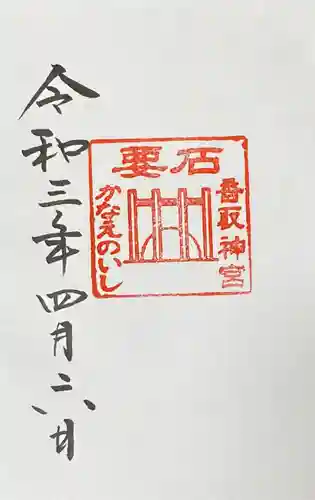 令和三年四月六日
要石
香取神宮
かなえのいし